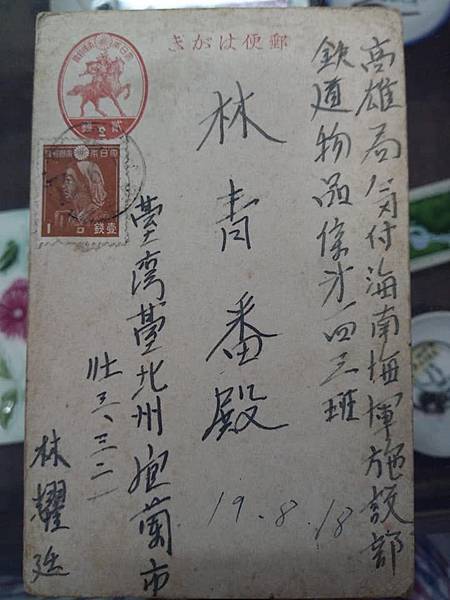 郵便はがき
高雄局気付海南海軍施設部
鉄道物品係第一四三班
林青番殿
19.8.18
臺灣臺北州宜蘭市
壮三、三二一
林耀廷
大日本帝國郵便
貳錢
大日本帝國郵便
1
壹錢